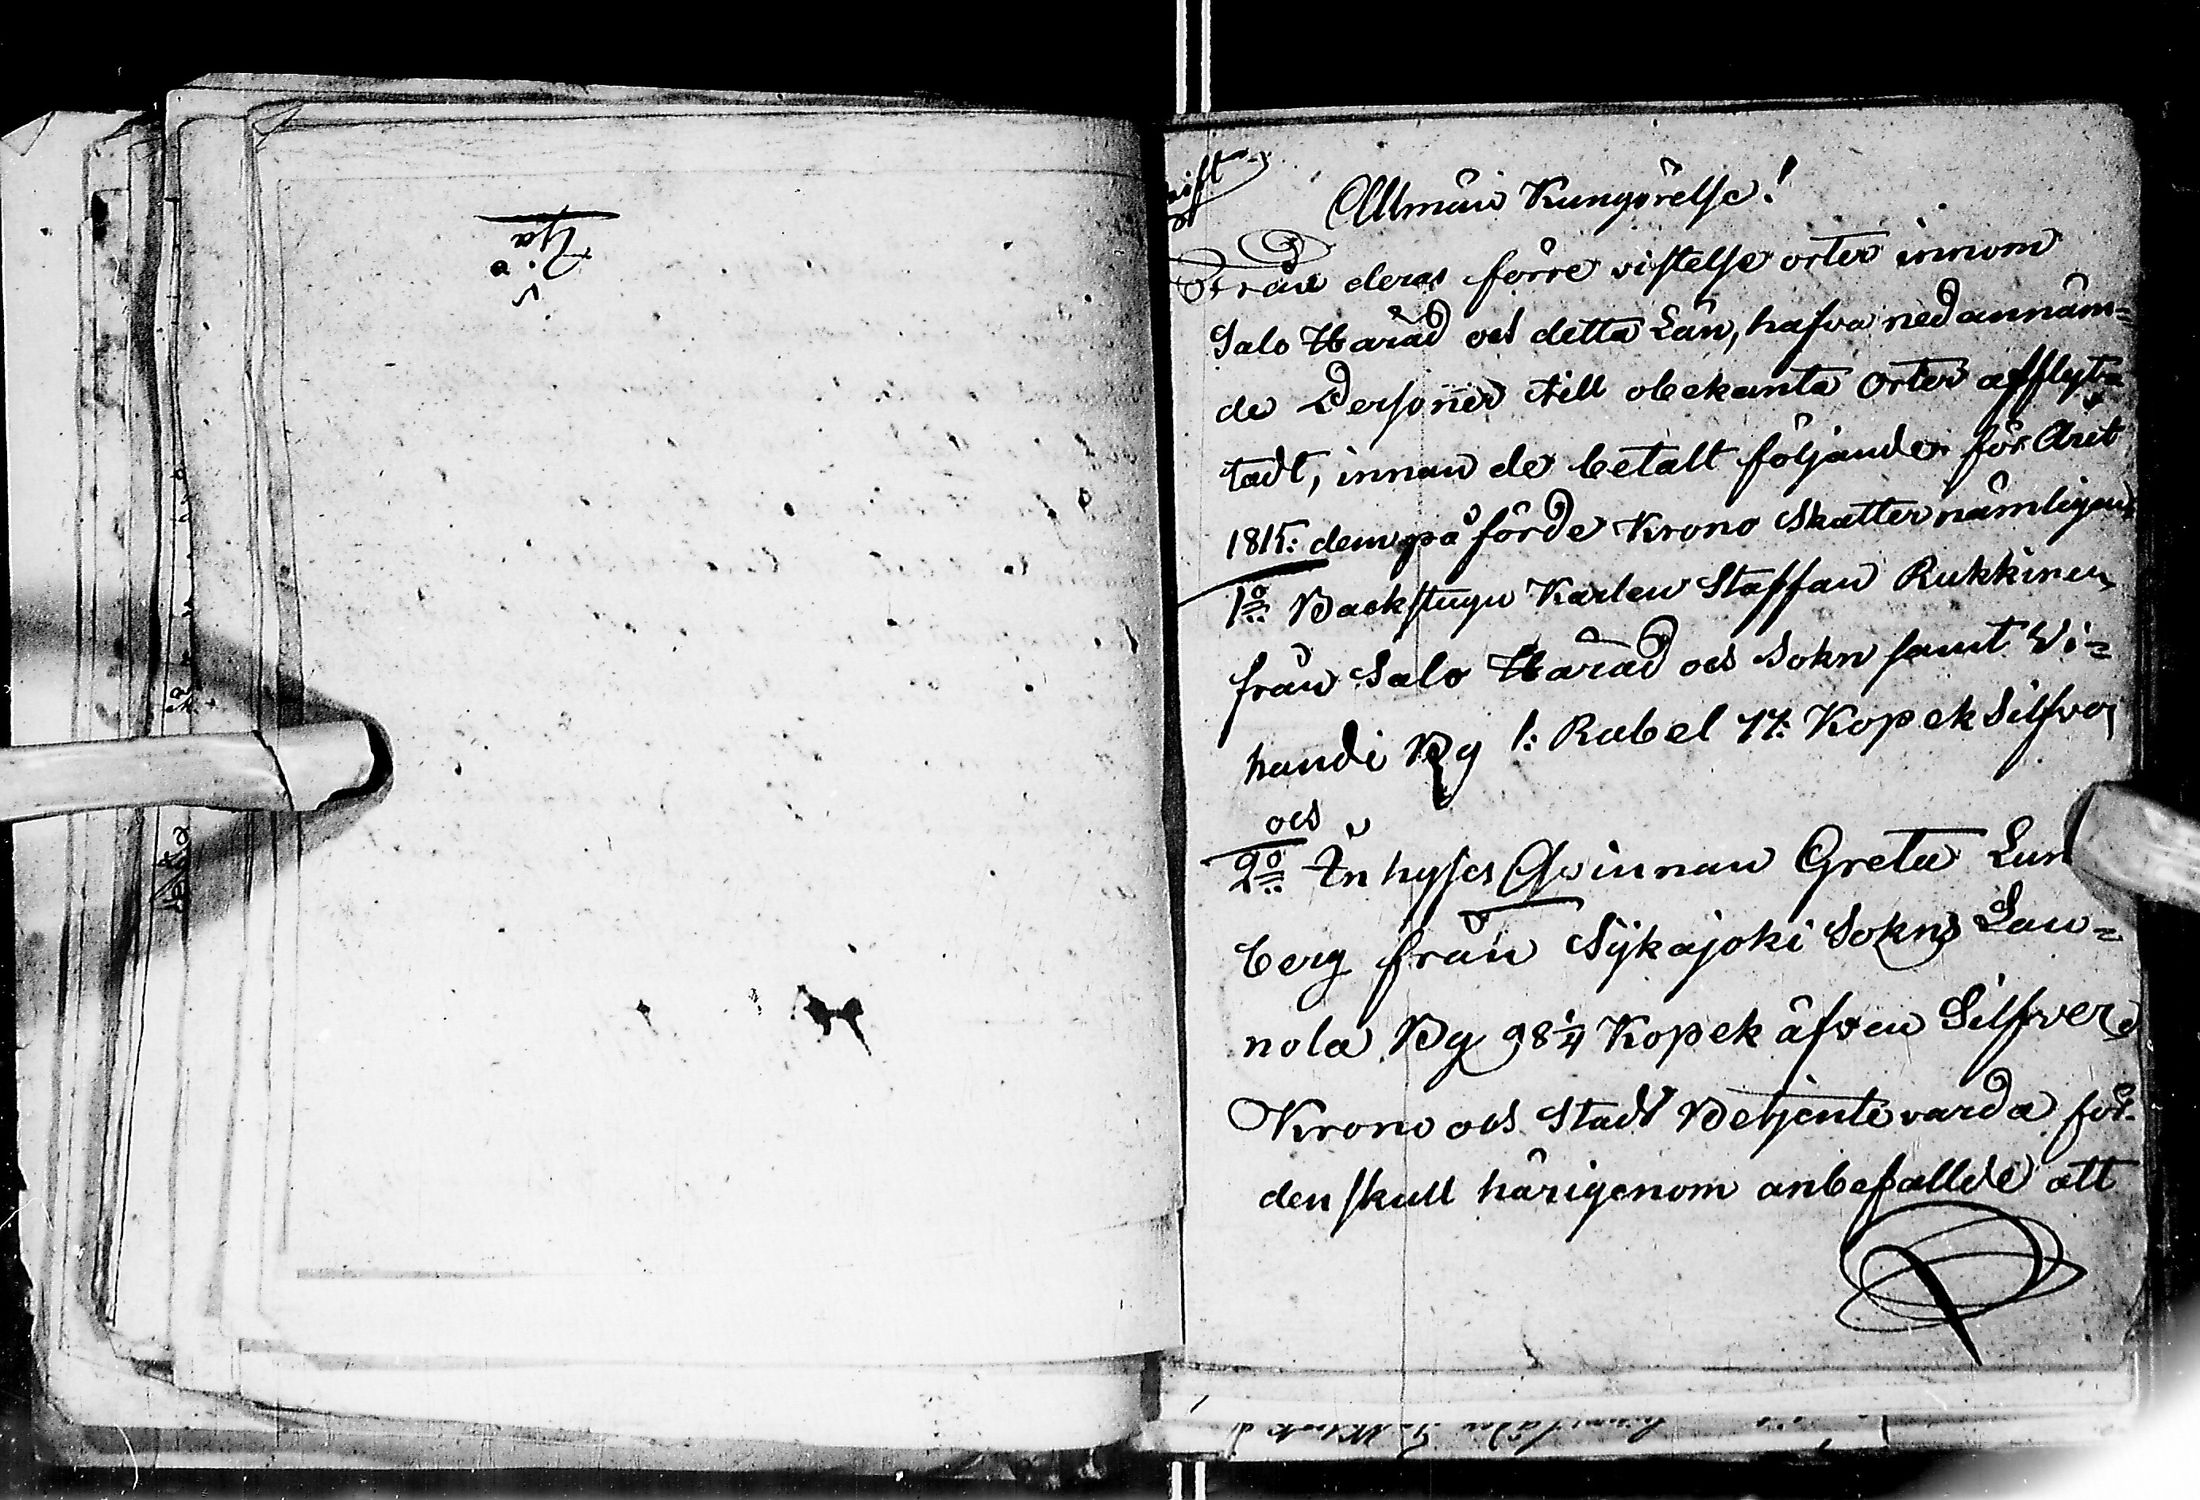 Allmän Kungörelse!
Från deras förre vistelse orter innom
Salo Härad och detta Län, hafva nedannäm=
de Personer till obekanta Orter afflyt=
tadt, innan de betalt följande för Året
1815: dem på förde Krono Skatter nämligen
1o Backstugu Karlen Staffan Rukkinen
från Salo Härad och Sokn samt Vi=
handi By 1: Rubel 17: Kopek Silfver
och
2o Inhyses Qvinnan Greta Lun
berg från Sijkajoki Sokns Lau=
nola By 98 1/4 Kopek äfven Silfver
Krono och Stads Betjente varda för
denskull härigenom anbefallde att